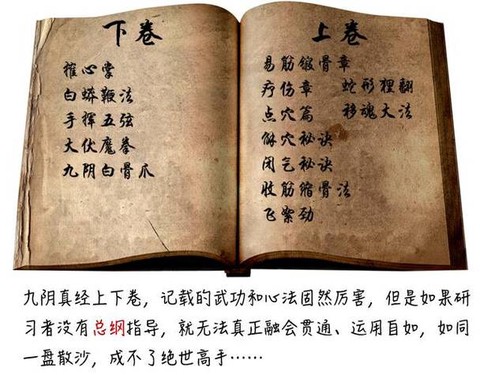 下卷
摧心掌
白蟒鞭法
手挥五弦
大伏魔拳
九阴白骨爪
上卷
易筋锻骨章
疗伤章 蛇形狸翻
点穴篇 移魂大法
解穴秘诀
闭气秘诀
收筋缩骨法
飞絮劲
九阴真经上下卷，记载的武功和心法固然厉害，但是如果研
习者没有总纲指导，就无法真正融会贯通、运用自如，如同
一盘散沙，成不了绝世高手……